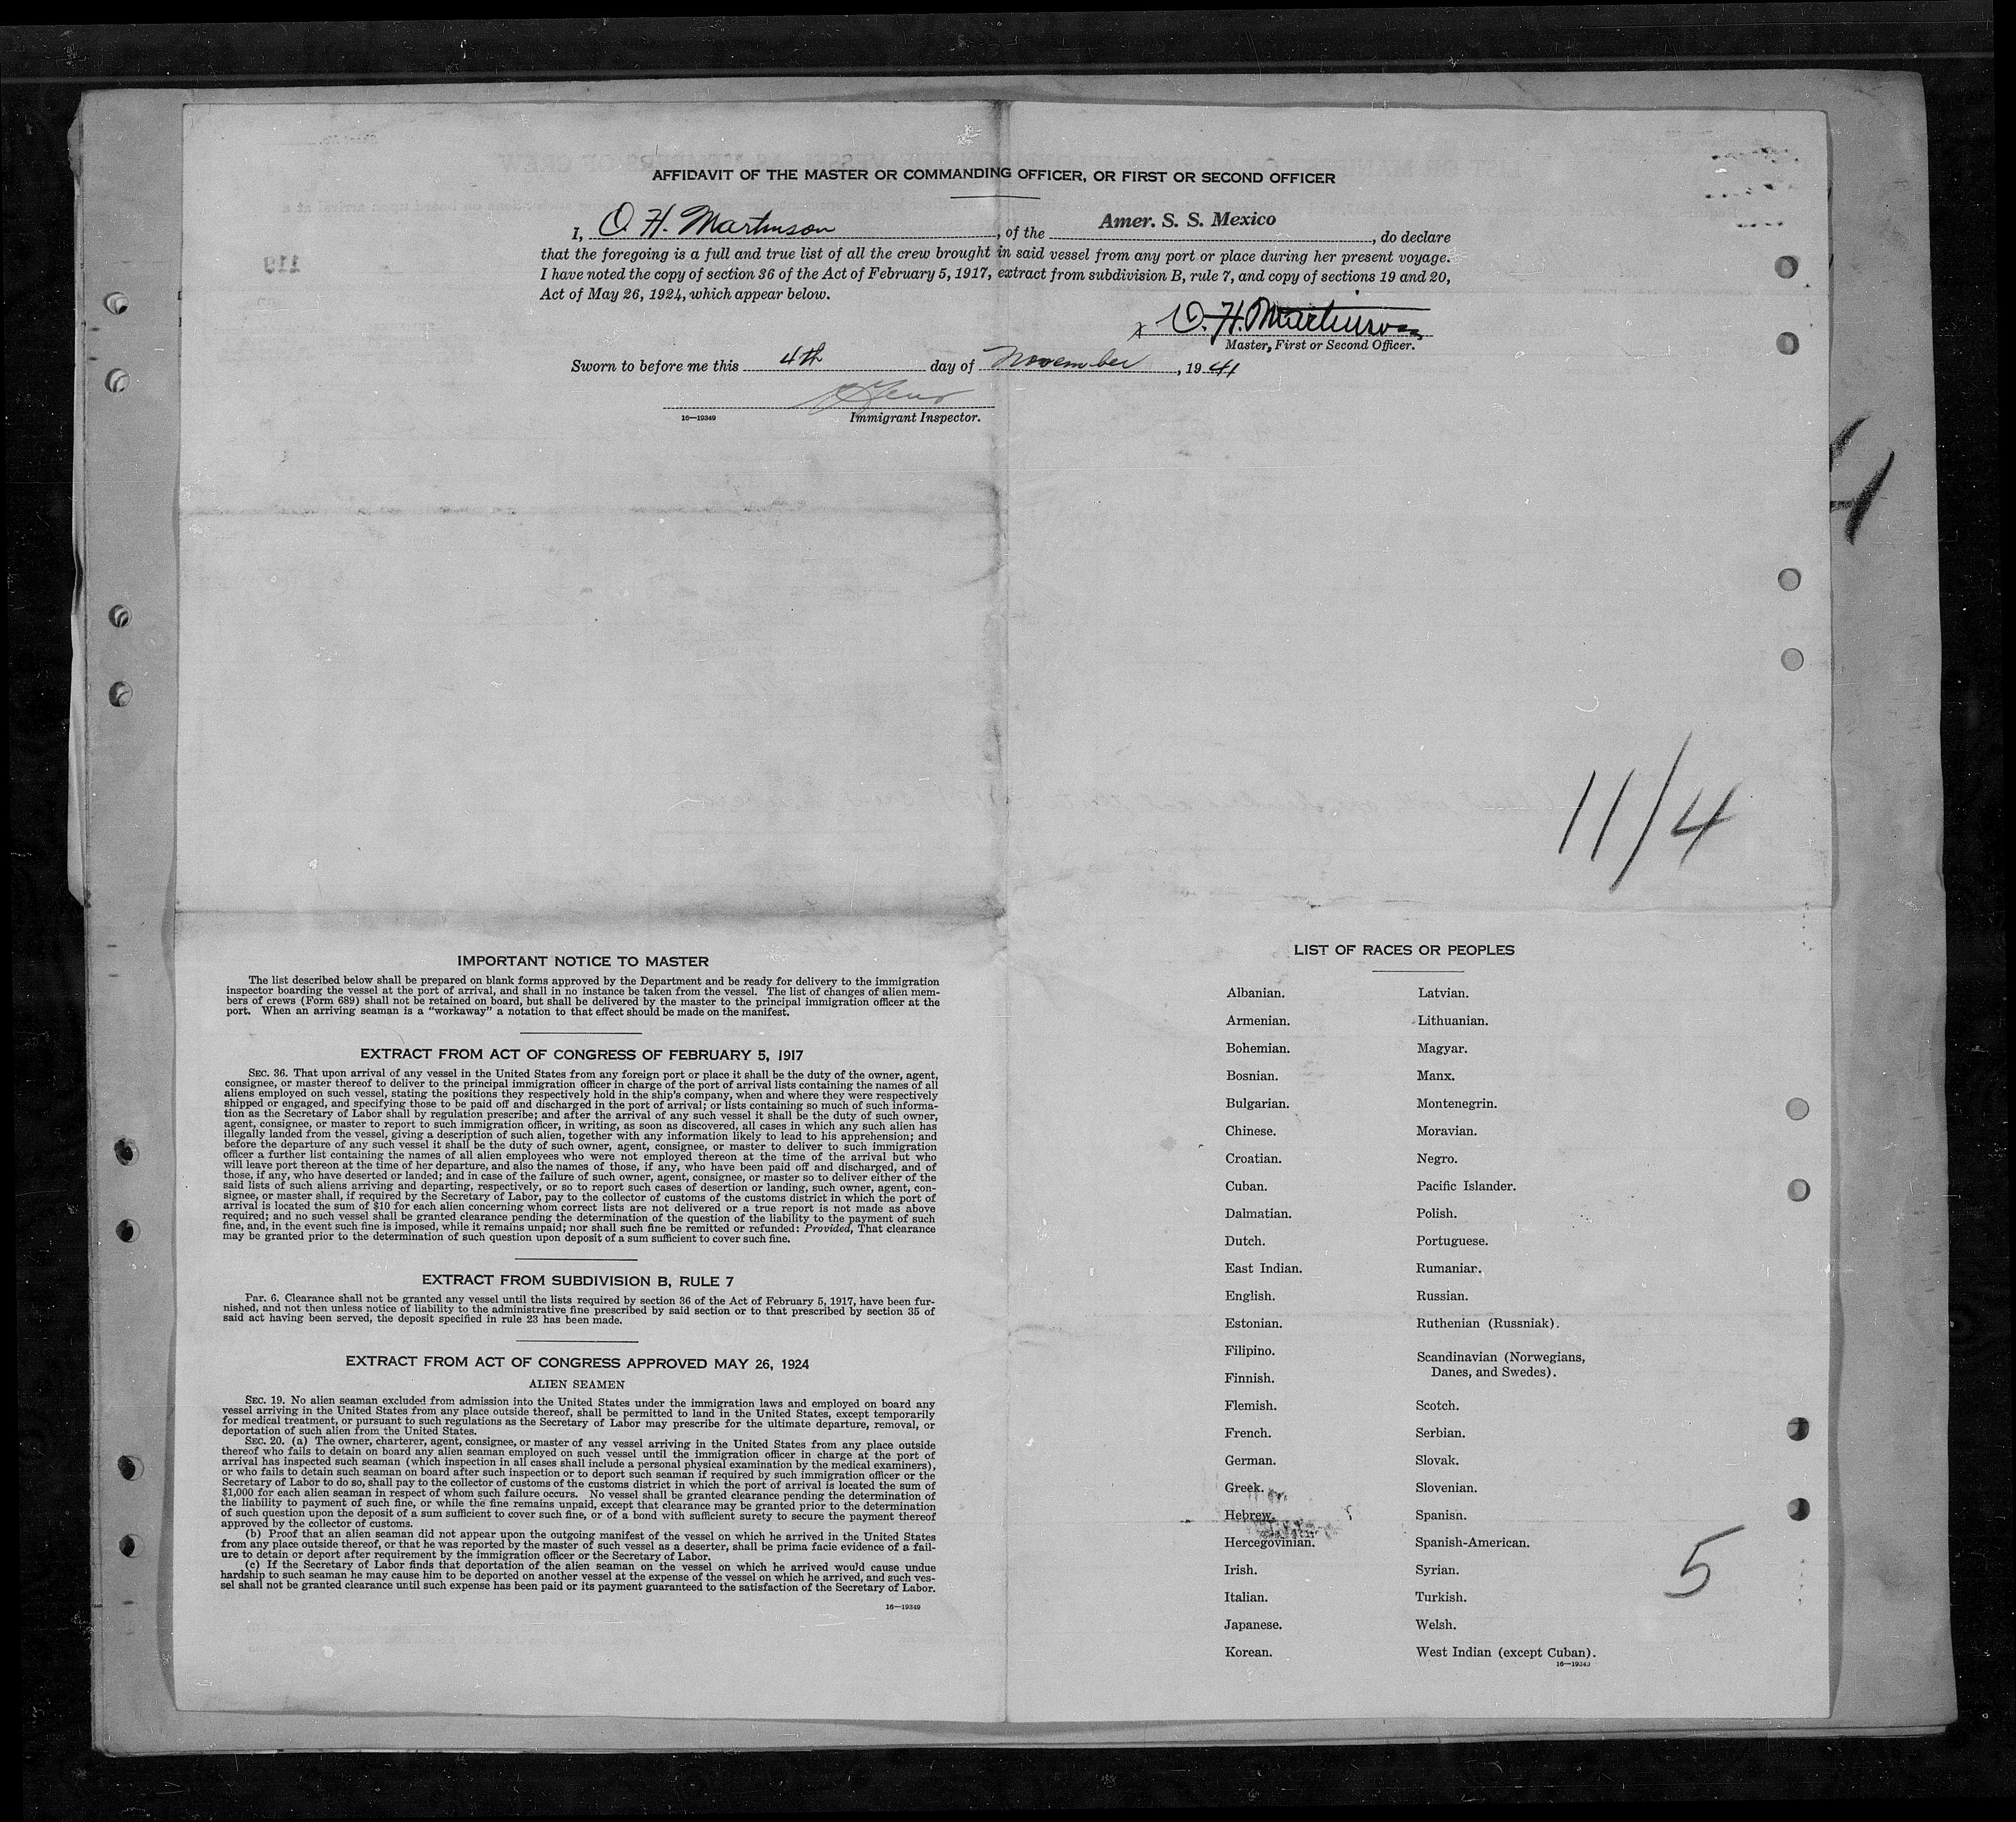 AFFIDAVIT OF THE MASTER OR COMMANDING OFFICER, OR FIRST OR SECOND OFFICER
I, O. H. Martinson, of the Amer. S. S. Mexico, do declare
that the foregoing is a full and true list of all the crew brought in said vessel from any port or place during her present voyage.
I have noted the copy of section 36 of the Act of February 5, 1917, extract from subdivision B, rule 7, and copy of sections 19 and 20,
Act of May 26, 1924, which appear below.
x O. H. Martinson
Master, First or Second Officer.
Sworn to before me this 4th day of November, 1941
16—19349 Immigrant Inspector.
11/4
IMPORTANT NOTICE TO MASTER
The list described below shall be prepared on blank forms approved by the Department and be ready for delivery to the immigration
inspector boarding the vessel at the port of arrival, and shall in no instance be taken from the vessel. The list of changes of alien mem-
bers of crews (Form 689) shall not be retained on board, but shall be delivered by the master to the principal immigration officer at the
port. When an arriving seaman is a "workaway" a notation to that effect should be made on the manifest.
EXTRACT FROM ACT OF CONGRESS OF FEBRUARY 5, 1917
SEC. 36. That upon arrival of any vessel in the United States from any foreign port or place it shall be the duty of the owner, agent,
consignee, or master thereof to deliver to the principal immigration officer in charge of the port of arrival lists containing the names of all
aliens employed on such vessel, stating the positions they respectively hold in the ship's company, when and where they were respectively
shipped or engaged, and specifying those to be paid off and discharged in the port of arrival; or lists containing so much of such informa-
tion as the Secretary of Labor shall by regulation prescribe; and after the arrival of any such vessel it shall be the duty of such owner,
agent, consignee, or master to report to such immigration officer, in writing, as soon as discovered, all cases in which any such alien has
illegally landed from the vessel, giving a description of such alien, together with any information likely to lead to his apprehension; and
before the departure of any such vessel it shall be the duty of such owner, agent, consignee, or master to deliver to such immigration
officer a further list containing the names of all alien employees who were not employed thereon at the time of the arrival but who
will leave port thereon at the time of her departure, and also the names of those, if any, who have been paid off and discharged, and of
those, if any, who have deserted or landed; and in case of the failure of such owner, agent, consignee, or master so to deliver either of the
said lists of such aliens arriving and departing, respectively, or so to report such cases of desertion or landing, such owner, agent, con-
signee, or master shall, if required by the Secretary of Labor, pay to the collector of customs of the customs district in which the port of
arrival is located the sum of $10 for each alien concerning whom correct lists are not delivered or a true report is not made as above
required; and no such vessel shall be granted clearance pending the determination of the question of the liability to the payment of such
fine, and, in the event such fine is imposed, while it remains unpaid; nor shall such fine be remitted or refunded: Provided, That clearance
may be granted prior to the determination of such question upon deposit of a sum sufficient to cover such fine.
EXTRACT FROM SUBDIVISION B, RULE 7
PAR. 6. Clearance shall not be granted any vessel until the lists required by section 36 of the Act of February 5, 1917, have been fur-
nished, and not then unless notice of liability to the administrative fine prescribed by said section or to that prescribed by section 35 of
said act having been served, the deposit specified in rule 23 has been made.
EXTRACT FROM ACT OF CONGRESS APPROVED MAY 26, 1924
ALIEN SEAMEN
SEC. 19. No alien seaman excluded from admission into the United States under the immigration laws and employed on board any
vessel arriving in the United States from any place outside thereof, shall be permitted to land in the United States, except temporarily
for medical treatment, or pursuant to such regulations as the Secretary of Labor may prescribe for the ultimate departure, removal, or
deportation of such alien from the United States.
SEC. 20. (a) The owner, charterer, agent, consignee, or master of any vessel arriving in the United States from any place outside
thereof who fails to detain on board any alien seaman employed on such vessel until the immigration officer in charge at the port of
arrival has inspected such seaman (which inspection in all cases shall include a personal physical examination by the medical examiners),
or who fails to detain such seaman on board after such inspection or to deport such seaman if required by such immigration officer or the
Secretary of Labor to do so, shall pay to the collector of customs of the customs district in which the port of arrival is located the sum of
$1,000 for each alien seaman in respect of whom such failure occurs. No vessel shall be granted clearance pending the determination of
the liability to payment of such fine, or while the fine remains unpaid, except that clearance may be granted prior to the determination
of such question upon the deposit of a sum sufficient to cover such fine, or of a bond with sufficient surety to secure the payment thereof
approved by the collector of customs.
(b) Proof that an alien seaman did not appear upon the outgoing manifest of the vessel on which he arrived in the United States
from any place outside thereof, or that he was reported by the master of such vessel as a deserter, shall be prima facie evidence of a fail-
ure to detain or deport after requirement by the immigration officer or the Secretary of Labor.
(c) If the Secretary of Labor finds that deportation of the alien seaman on the vessel on which he arrived would cause undue
hardship to such seaman he may cause him to be deported on another vessel at the expense of the vessel on which he arrived, and such ves-
sel shall not be granted clearance until such expense has been paid or its payment guaranteed to the satisfaction of the Secretary of Labor.
16—19349
LIST OF RACES OR PEOPLES
Albanian.
Armenian.
Bohemian.
Bosnian.
Bulgarian.
Chinese.
Croatian.
Cuban.
Dalmatian.
Dutch.
East Indian.
English.
Estonian.
Filipino.
Finnish.
Flemish.
French.
German.
Greek.
Hebrew.
Hercegovinian.
Irish.
Italian.
Japanese.
Korean.
Latvian.
Lithuanian.
Magyar.
Manx.
Montenegrin.
Moravian.
Negro.
Pacific Islander.
Polish.
Portuguese.
Rumanian.
Russian.
Ruthenian (Russniak).
Scandinavian (Norwegians,
Danes, and Swedes).
Scotch.
Serbian.
Slovak.
Slovenian.
Spanish.
Spanish-American.
Syrian.
Turkish.
Welsh.
West Indian (except Cuban).
16—19349
5